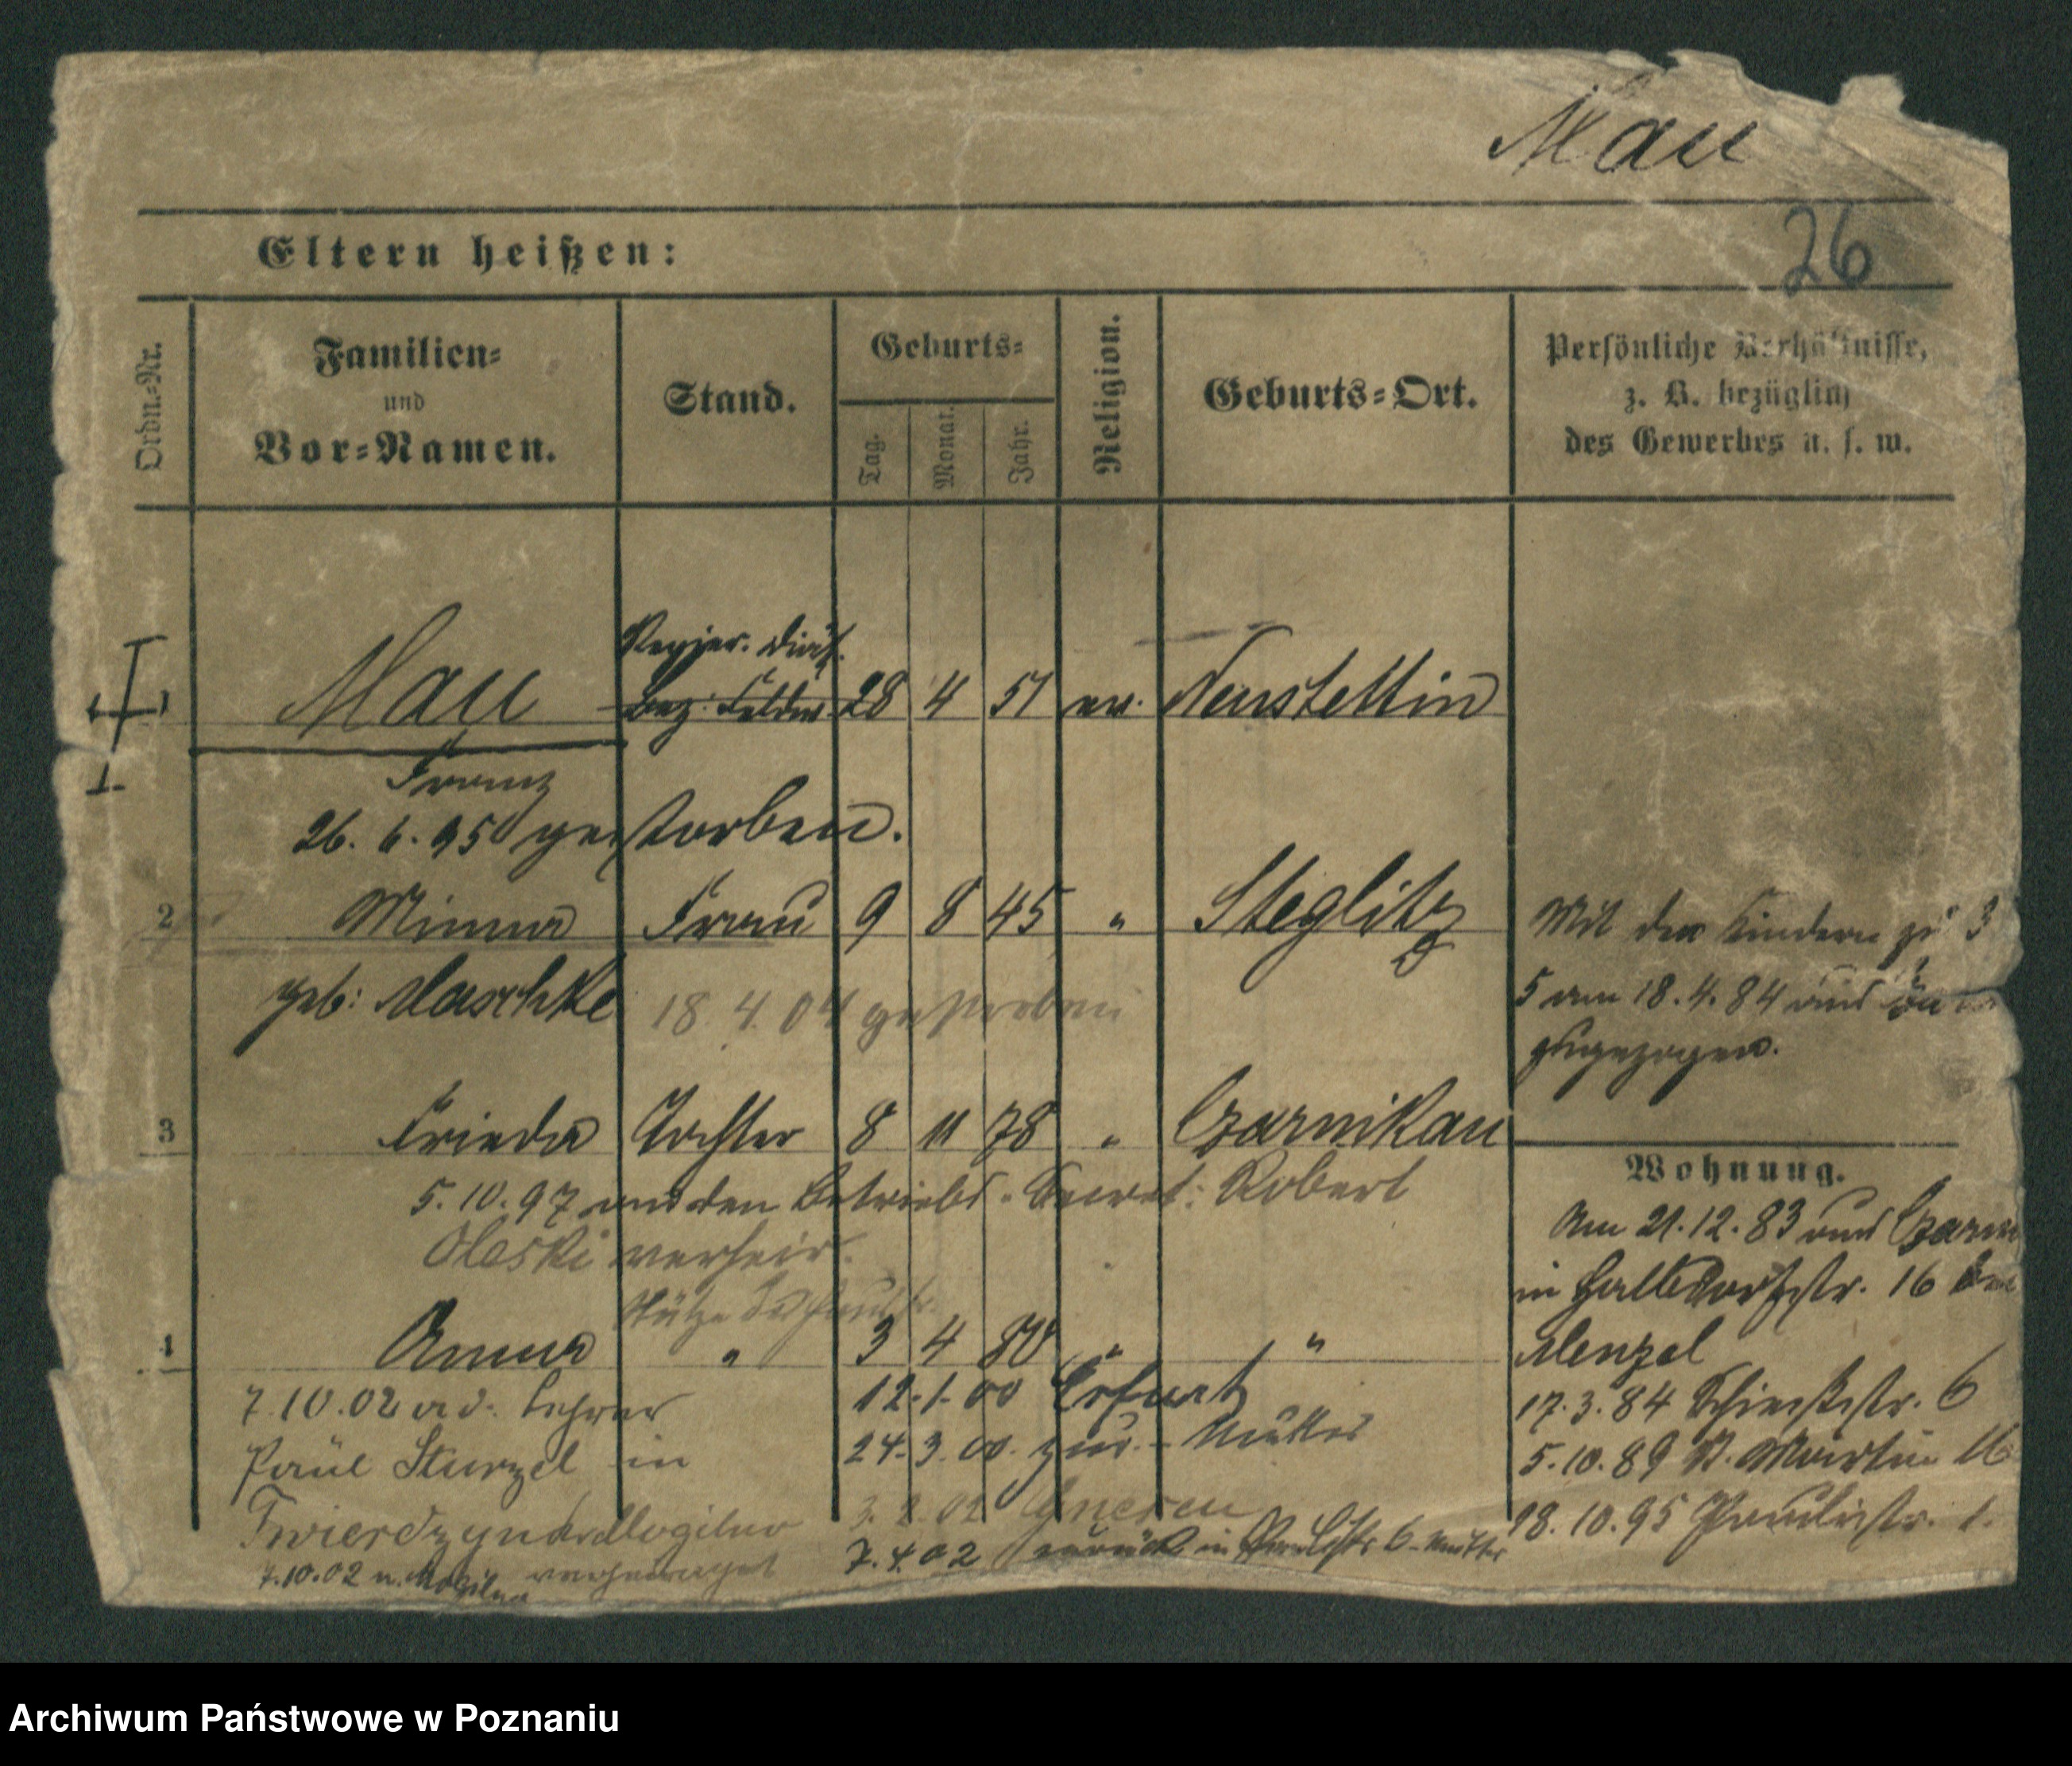 Mau
26
Eltern heißen:
Ordn.-Nr.
Familien-
und
Vor-Namen.
Stand.
Geburts-
Tag.
Monat.
Jahr.
Religion.
Geburts-Ort.
Persönliche Verhältnisse,
z. B. bezüglich
des Gewerbes u. s. w.
Regier. Diät.
Mau 28 4 51 ev. Neustettin
Franz
26. 6. 95 gestorben.
2 Minna Frau 9 8 45 " Steglitz
geb: Maschke 18. 4. 04 gestorben
Mit den Kindern zu 3
5 am 18. 4. 84 aus
zugezogen.
3 Frieda Tochter 8 11 78 " Czarnikau
5. 10. 97 an den Betriebs-Secret: Robert
Oleski verheir.
Stütze
4 Anna " 3 4 80 " "
7.10.02 a. d. Lehrer
Paul Sturzel in
verheiratet
7.10.02 n. Mogilno
12. 1. 00 Erfurt
24. 3. 00. zur. - Mutter
3. 2. 02 Gnesen
7. 4. 02 zurück in Paulistr 6 - Mutter
Wohnung.
Am 21. 12. 83 aus Czarni
in Halbdorfstr. 16 bei
Menzel
17. 3. 84 Schiesstr. 6
5. 10. 89 St. Martin
28. 10. 95 Paulistr. 1.
Archiwum Państwowe w Poznaniu